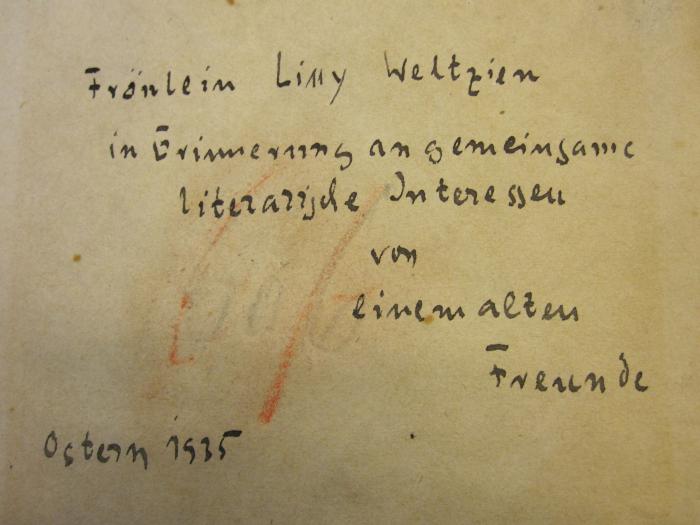 Fräulein Lilly Weltzien
in Erinnerung an gemeinsame
literarische Interessen
von
einem alten
Freunde
Ostern 1935